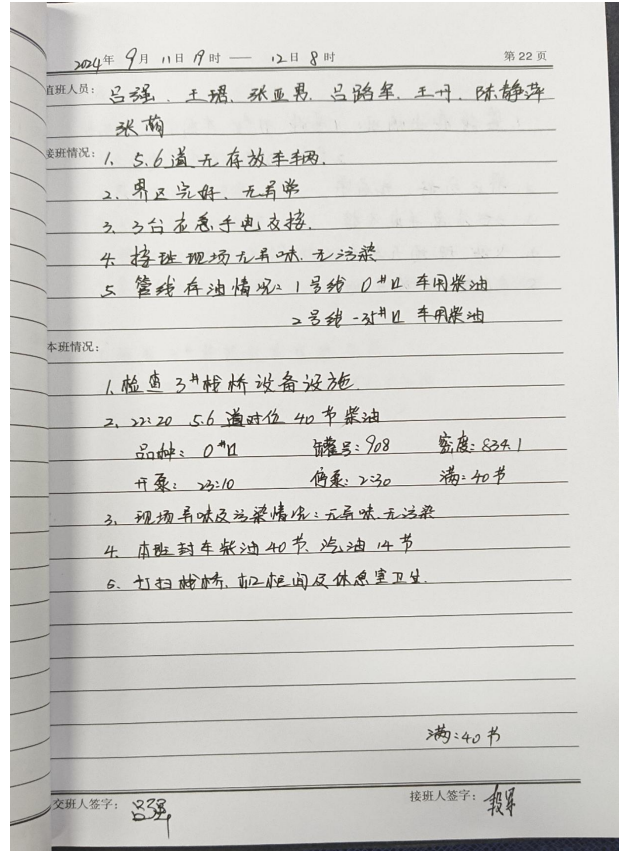 2024年 9月 11日 19时 —— 12日 8时 第 22 页
直班人员: 吕强、王珺、张亚男、吕路军、王丹、陈静萍
张萌
接班情况: 1. 5.6道无存放车辆.
2. 界区完好、无异常
3. 3台应急手电交接.
4. 接班现场无异味.无污染
5. 管线存油情况: 1号线 0#Ⅵ 车用柴油
2号线 -35#Ⅵ 车用柴油
本班情况:
1. 检查3#栈桥设备设施
2. 22:20 5.6道对位 40节柴油
品种: 0#Ⅵ 罐号: 908 密度: 834.1
开泵: 23:10 停泵: 2:30 满: 40节
3. 现场异味及污染情况: 无异味.无污染
4. 本班封车柴油40节、汽油14节
5. 打扫栈桥、机柜间及休息室卫生.
满: 40节
交班人签字: 吕强 接班人签字: